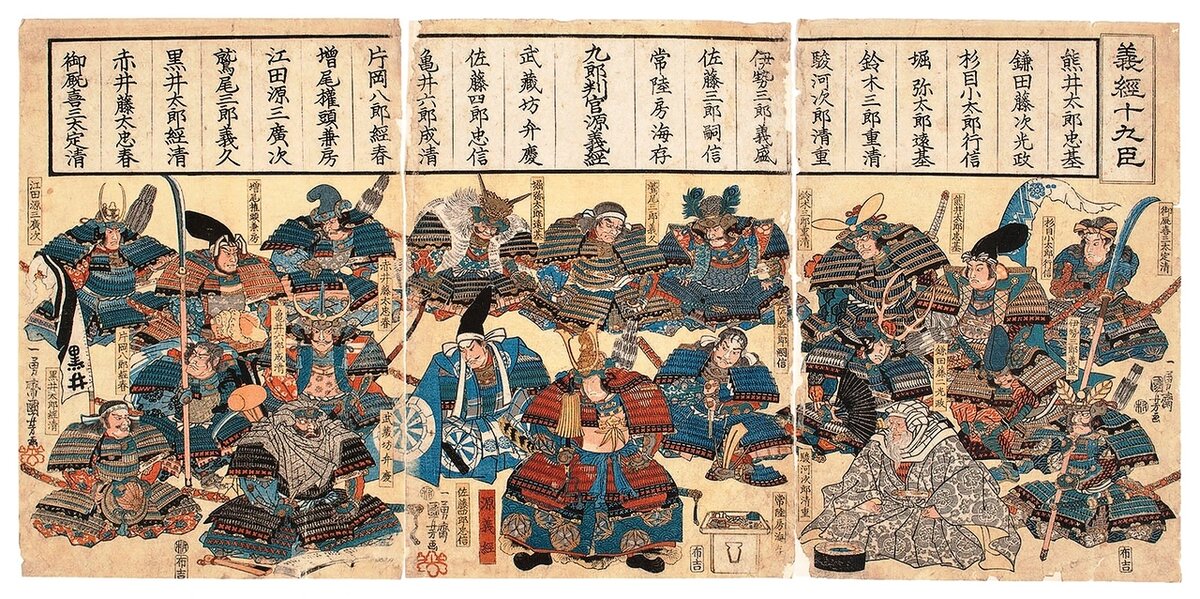 義經十九臣
熊井太郎忠基
鎌田藤次光政
杉目小太郎行信
堀弥太郎遠基
鈴木三郎重清
駿河次郎清重
伊勢三郎義盛
佐藤三郎嗣信
常陸房海存
九郎判官源義経
武蔵坊弁慶
佐藤四郎忠信
亀井六郎成清
片岡八郎経春
増尾權頭兼房
江田源三廣次
鷲尾三郎義久
黒井太郎經清
赤井藤太忠春
御厩喜三太定清
御厩喜三太定清
杉目小太郎行信
熊井太郎忠基
鈴木三郎重清
伊勢三郎義盛
駿河次郎清重
一勇齋國芳画
布吉
鷲尾三郎義久
堀弥太郎遠基
佐藤三郎嗣信
常陸房海存
源義經
佐藤四郎忠信
一勇齋國芳画
布吉
増尾權頭兼房
江田源三廣次
赤井藤太忠春
亀井六郎成清
片岡八郎経春
武蔵坊弁慶
黒井
黒井太郎経清
一勇齋國芳画
布吉